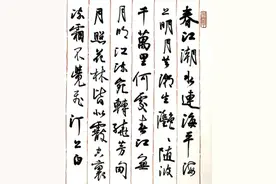 春江潮水連海平海
上明月共潮生灩〻随波
千萬里何處春江無
月明江流宛轉繞芳甸
月照花林皆似霰空裏
流霜不覺飛汀上白